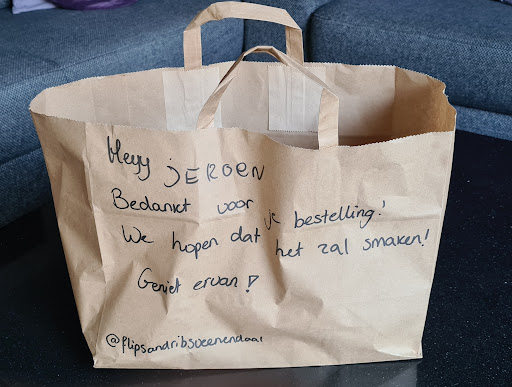 Heyy jEROEN
Bedankt voor je bestelling!
We hopen dat het zal smaken!
Geniet ervan!
@flipsandribsveenendaal